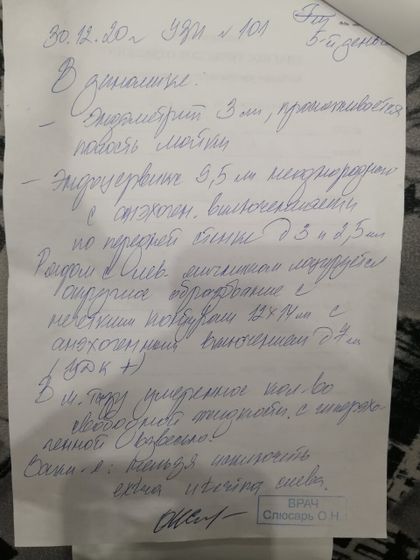 30.12.20г УЗИ №101
5-й день
В динамике.
- Эндометрий 3 мм, прослеживается
полость матки
- Эндоцервикс 9,5 мм неоднородного
с анэхоген. включениями
по передней стенке d 3 и 3,5 мм
Рядом с лев. яичником лоцируется
округлое образование с
нечетким контуром 12х14 мм с
анэхогенным включением d 7 мм
(ЦДК +)
В м. тазу умеренное кол-во
свободной жидкости с гиперэхо-
генной взвесью.
Закл-е: Нельзя исключить
слева.
ВРАЧ
Слюсарь О.Н.